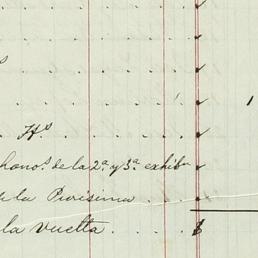 s
. . Hs
hanos. de la 2a. y 3a. exhibn
de la Purisima . .
la vuelta . . . . $